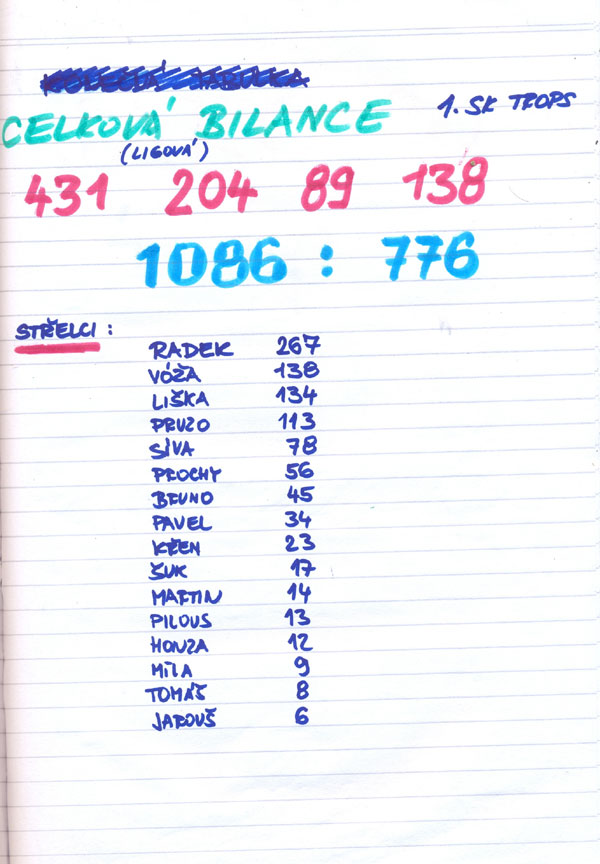 CELKOVÁ BILANCE 1. SK TROPS
(LIGOVÁ)
431 204 89 138
1086 : 776
STŘELCI :
RADEK 267
VÓŽA 138
LIŠKA 134
PRUZO 113
SÍVA 78
PROCHY 56
BRUNO 45
PAVEL 34
KŘEN 23
ŠUK 17
MARTIN 14
PILOUS 13
HONZA 12
MÍLA 9
TOMÁŠ 8
JAROUŠ 6